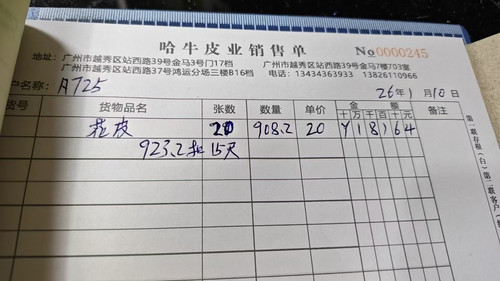 哈牛皮业销售单 No 0000245
地址：广州市越秀区站西路39号金马3号门17档 广州市越秀区站西路39号金马7楼703室
广州市越秀区站西路37号鸿运分场三楼B16档 电话：13434363933 13826110966
户名称：A725 26年1月10日
货号 货物品名 张数 数量 单价 金额 备注
十万千百十元
花皮 20 908.2 20 ¥18164
923.2扣15天
第一联存根（白）第二联客户